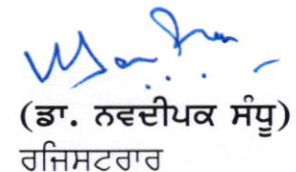 (ਡਾ. ਨਵਦੀਪਕ ਸੰਧੂ)
ਰਜਿਸਟਰਾਰ